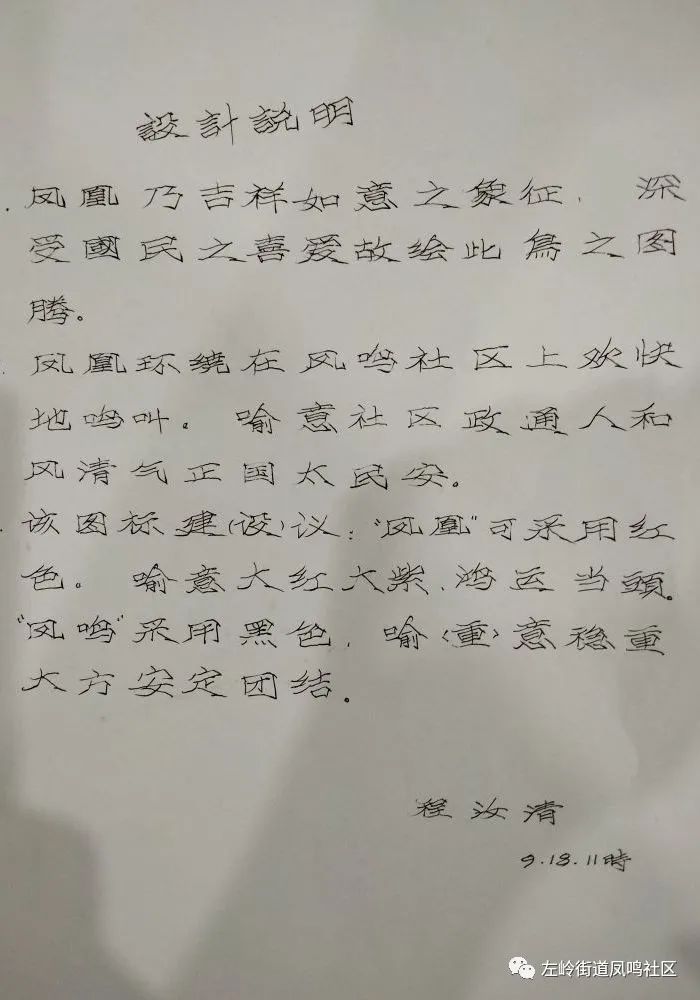 設計説明
. 凤凰乃吉祥如意之象征、深
受國民之喜爱故绘此鳥之图
腾。
. 凤凰环绕在凤鸣社区上欢快
地鸣叫。喻意社区政通人和
风清气正国太民安。
. 该图标建(设)议:“凤凰”可采用红
色。喻意大红大紫、鸿运当頭。
“凤鸣”采用黑色、喻(重)意稳重
大方安定团结。
程汝清
9.18.11時
左岭街道凤鸣社区